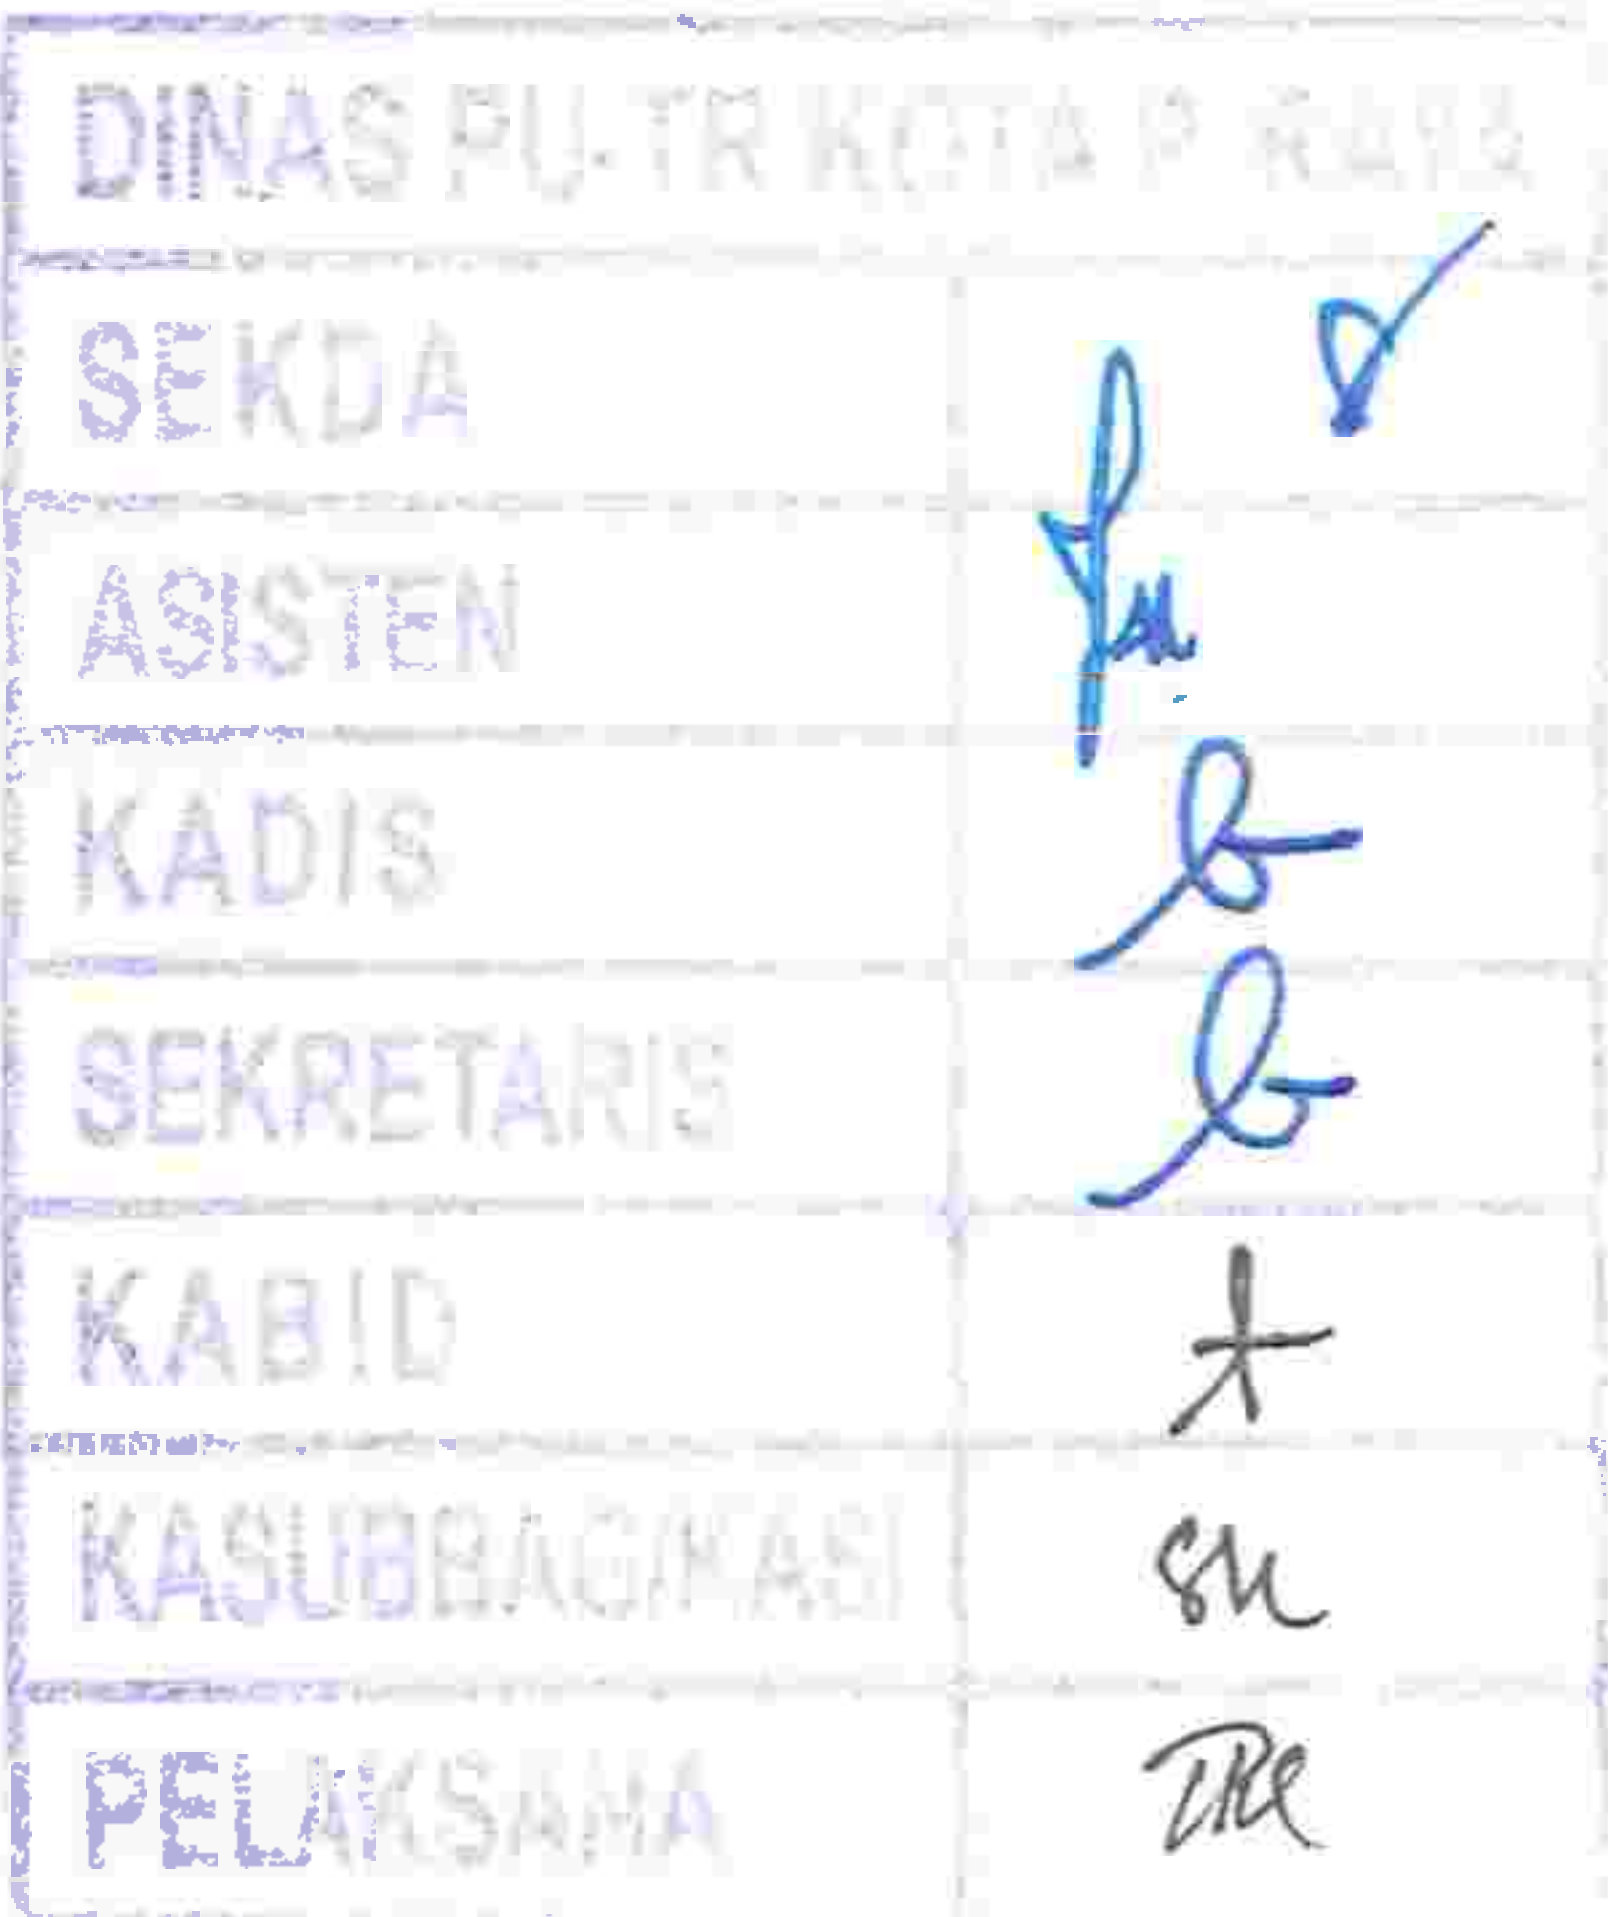 DINAS PU-TR KOTA P RAYA
SEKDA
ASISTEN
KADIS
SEKRETARIS
KABID
KASUBBAG/KASI
PELAKSANA